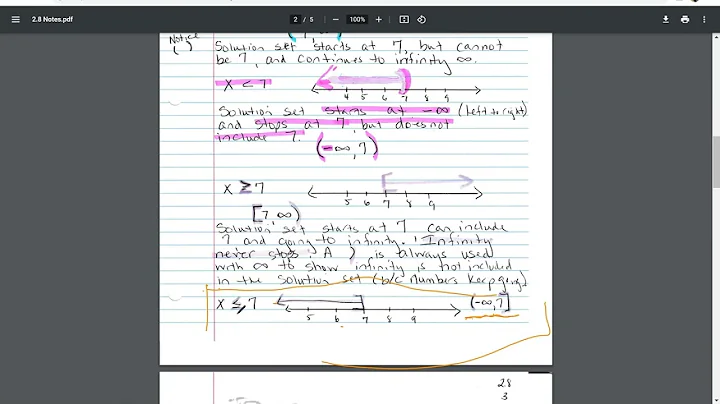 2.8 Notes.pdf
2 / 5
100%
Notice
( )
(7, ∞)
Solution set starts at 7, but cannot
be 7, and continues to infinity ∞.
X < 7
4 5 6 7 8 9
Solution set starts at -∞ (Left to right)
and stops at 7, but does not
include 7.
(-∞, 7)
X ≥ 7
5 6 7 8 9
[7, ∞)
Solution set starts at 7 can include
7 and going to infinity. Infinity
never stops. A ) is always used
with ∞ to show infinity is not included
in the solution set (b/c numbers keep going)
X ≤ 7
5 6 7 8 9
(-∞, 7]
28
3